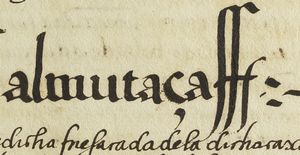 almutaçaff
dicha fue sacada de la dicha